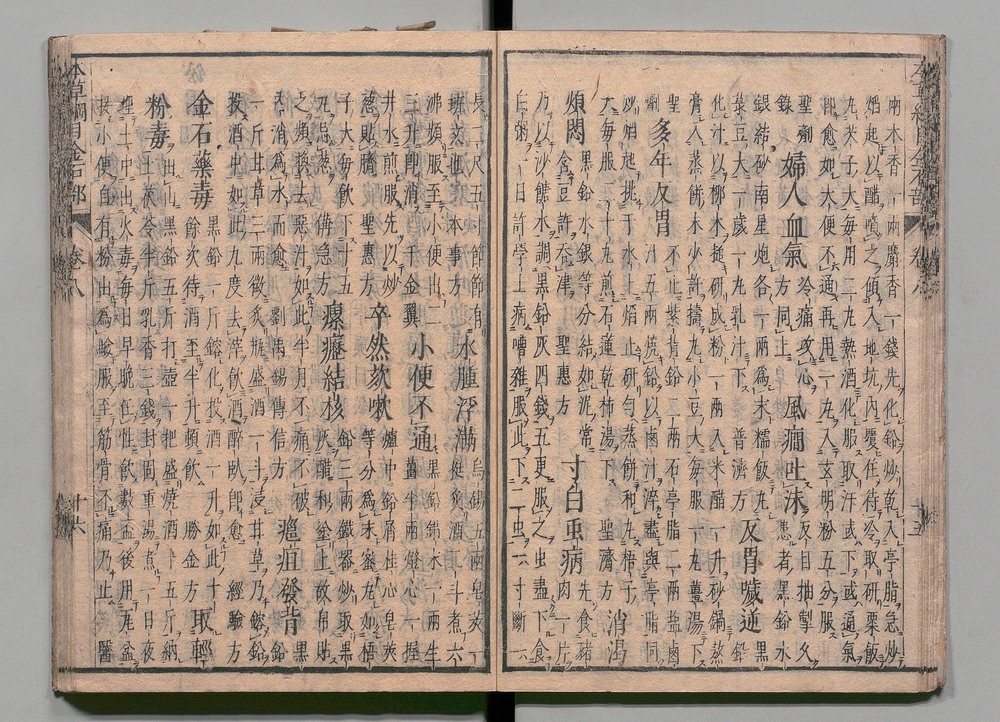 兩木香一兩麝香一錢先化鉛炒乾入亭脂急炒
焰起以醋噴之傾入地坑內覆住待冷取研粟飯
丸米子大每用二丸熱酒化服取汗或下或通氣
即愈如大便不通再用一丸入玄明粉五分服
聖劑錄 婦人血氣 冷痛攻心 同上 風癇吐沫 患者黑鉛水
銀結砂南星炮各一兩爲末糯飯丸 反胃噦逆 黑鉛
菉豆大一歲一丸乳汁下 普濟方
化汁以柳木搥研成粉一兩入米醋一升砂鍋熬
膏入蒸餅末少許擣丸小豆大每服一丸薑湯下
聖 多年反胃 不止紫背鉛二兩石亭脂二兩鹽鹵
汁燒鉛以鹵汁淬盡與亭脂同
炒焰起挑于水上焰止研勻蒸餅和丸梧子
大每服二十丸煎石蓮乾柿湯下 聖濟方 消渴
煩悶 黑鉛水銀等分結如泥常
含豆許吞津 聖惠方 寸白虫病 先食猪肉一片
乃以沙餹水調黑鉛灰四錢五更服之虫盡下食
白粥一日許學士病嘈雜服此下二虫一六寸斷一
長二尺五寸節節有斑文也 本事方 水腫浮滿 烏錫五兩皂莢一
挺炙酒二斗煮六
沸頻服至小便出二
三升即消 千金翼 小便不通 黑鉛錯末一兩生
薑半兩燈心一握
井水煎服先以炒
葱貼臍 聖惠方 卒然欬嗽 爐中鉛屑桂心皂莢
等分爲末蜜丸如梧
子大每飲下十五
丸忌葱 備急方 瘰癧結核 鉛三兩鐵器炒取
灰醋和塗上故帛貼
之頻換去惡汁如此半月不痛不破
內消爲水而愈 劉禹錫傳信方 癰疽發背 黑鉛
一斤甘草三兩微炙瓶盛酒一斗浸甘草乃鎔鉛
投酒中如此九度去滓飲酒醉臥即愈 經驗方
金石藥毒 黑鉛一斤鎔化投酒一升如此十
餘次待酒至半升頓飲 勝金方 取輕
粉毒 出山黑鉛五斤打壺一把盛燒酒十五斤納
土茯苓半斤乳香三錢封固重湯煮一日夜
埋土中出火毒每日早晚任性飲數盃後用瓦盆
接小便自有粉出爲驗服至筋骨不痛乃止 醫
本草綱目金石部
卷之八